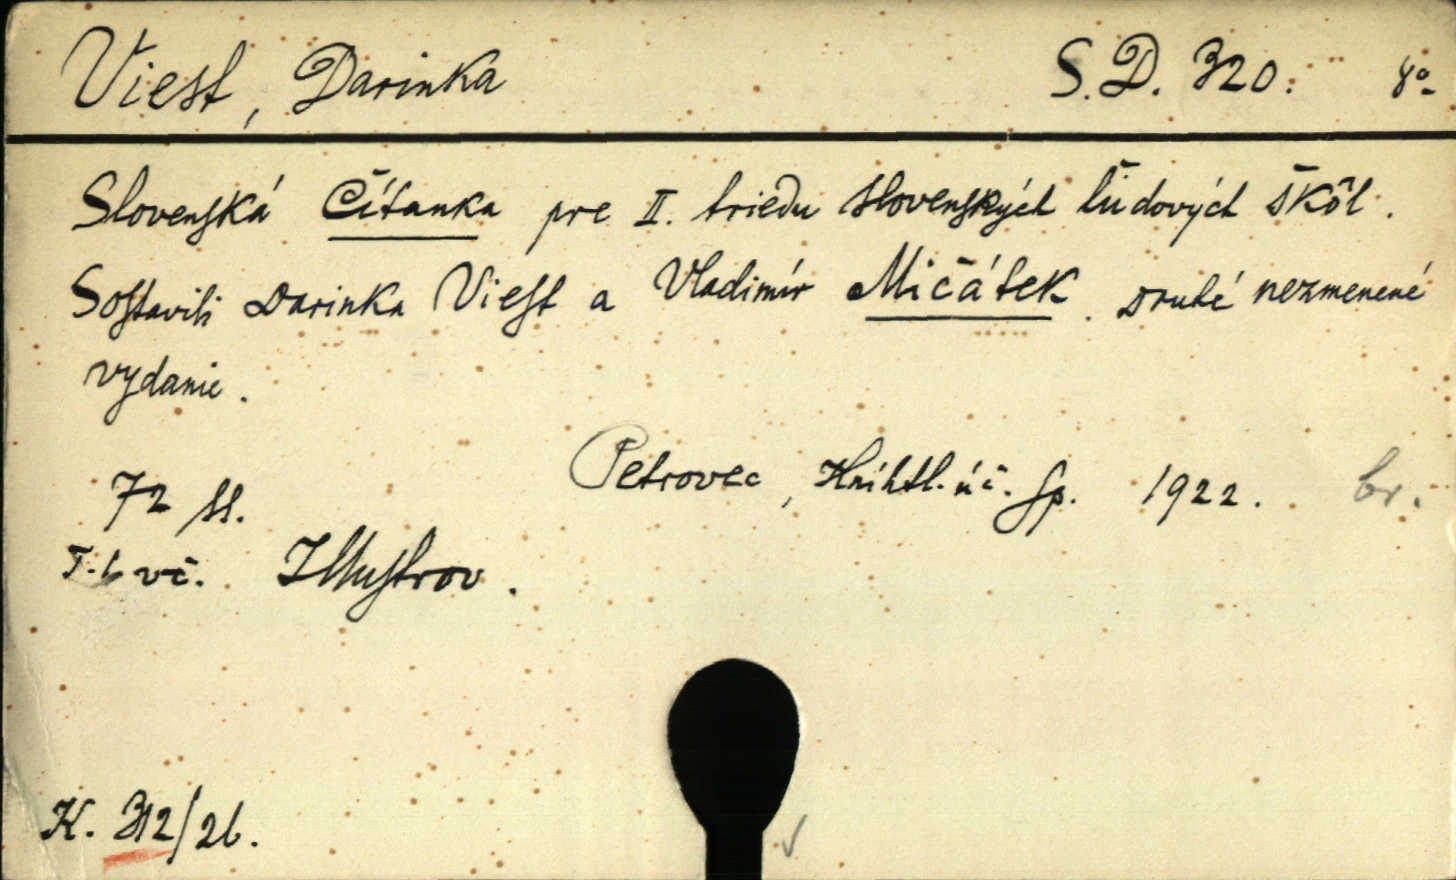 Viest, Darinka S.D. 320. 8°
Slovenská Čítanka pre II. triedu slovenských ľudových škôl.
Sostavili Darinka Viest a Vladimír Mičátek. Druhé nezmenené
vydanie.
Petrovec, Kníhtl. úč. sp. 1922. br.
72 ss.
Illustrov.
K. 312/26.